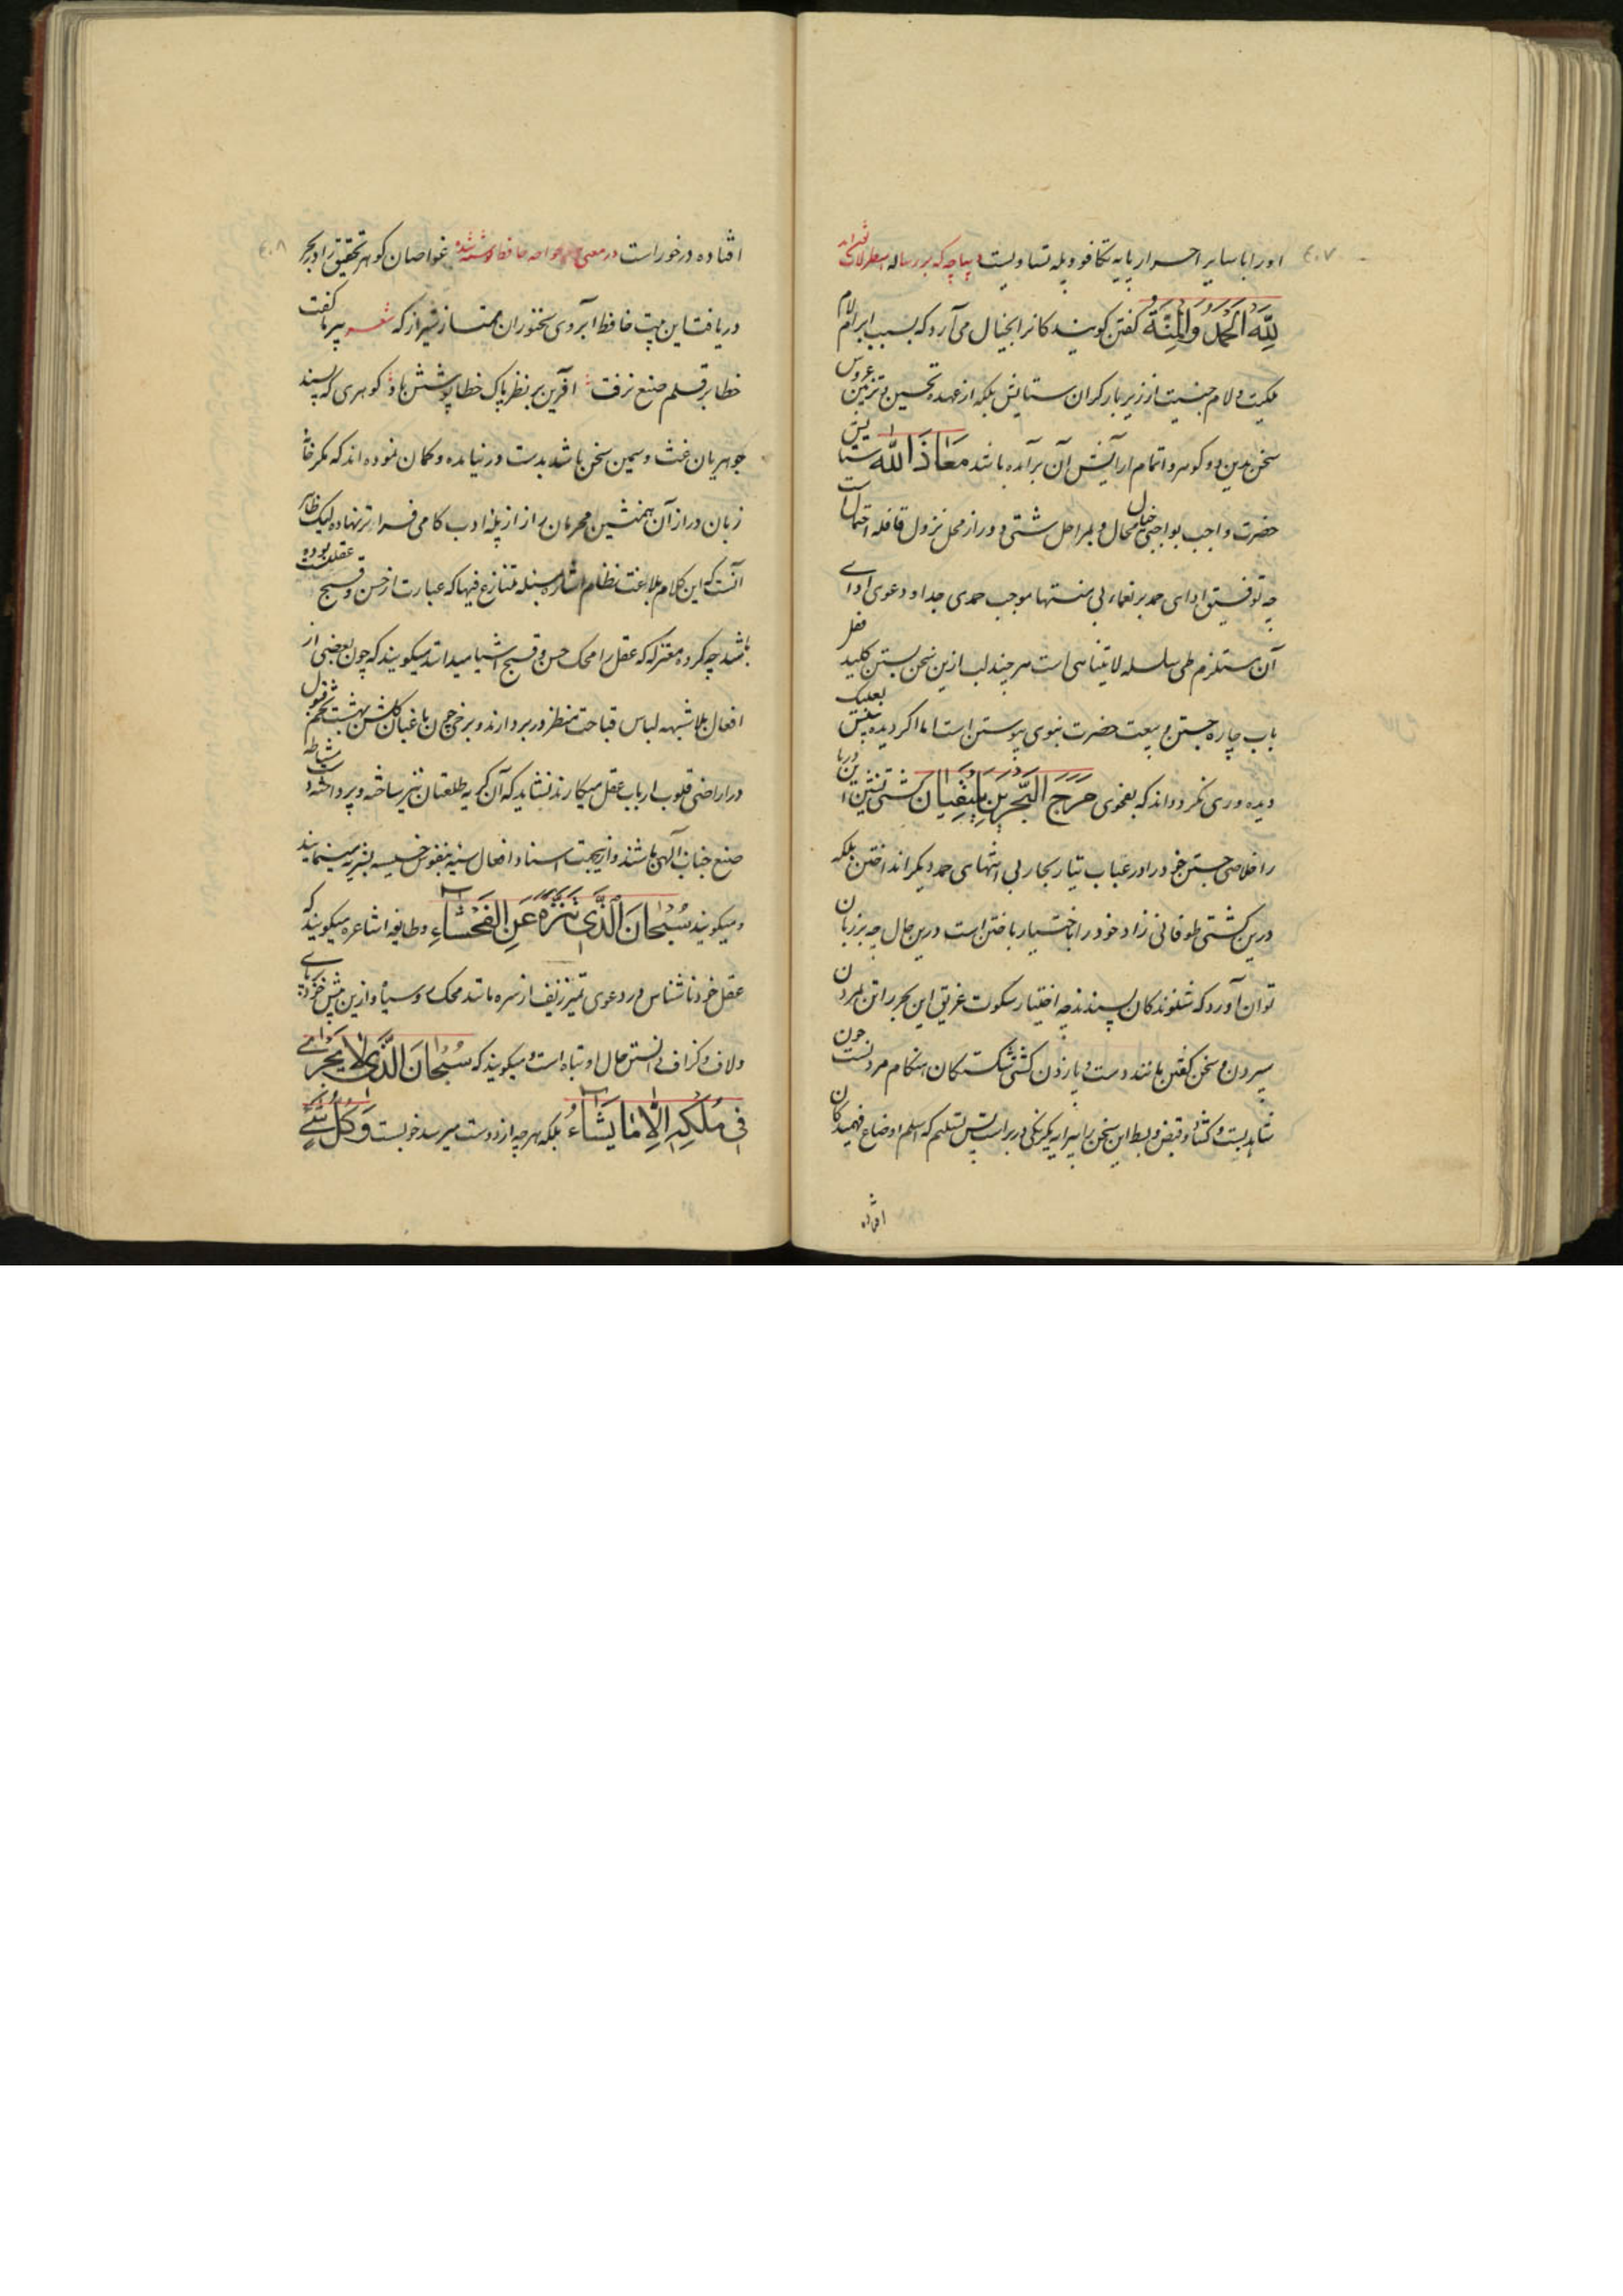 ٤٠٧
اورا با سایر احرار پایه تکافو و پله تساویست دیباچه که بر رساله اسطرلاب نوشته‌اند
لِلّهِ الحَمدُ وَالمِنَّة گفتن گویند کانرا بخیال می‌آرد که بسبب ایراد لام
ملکیت و لام جنسیت از زیر بار گران ستایش بلکه از عهده تحسین و تزیین عروس
سخن بدین دو گوهر و اتمام آرایش آن برآمده باشند مَعَاذَ اللّه ستایش
حضرت واجب بواجبی خیال محال و بمراحل شتی دور از محل نزول قافله احتمال است
چه توفیق ادای حمد بر نعماء بی منتها موجب حمدی جدا و دعوی ادای
آن مستلزم طی سلسله لایتناهی است هر چند لب ازین سخن بستن کلید قفل
باب چاره جستن و ببیعت حضرت نبوی پیوستن است اما اگر دیده بینش بعینک
دیده‌وری نگرد داند که بفحوای مَرَجَ البَحرَینِ یَلتَقِیَان کشتی نشین این دریا
را خلاصی جستن خود را در غباب تیار بحار بی انتهای حمد دیگر انداختن بلکه
درین کشتی طوفانی زاد خود را باختیار باختن است درین حال چه بر زبان
توان آورد که شنوندگان پسندند چه اختیار سکوت غریق این بحر را تن بمردن
سپردن و سخن گفتن مانند دست و پا زدن کشتی شکستگان هنگام مردنست چون
شاهد بست و گشاد و قبض و بسط این سخن را پیرایه یکرنگی در بر است پس تسلیم که اسلم اوضاع فهمیدگان
افتاده
٤٠٨
افتاده درخور است در معنی خواجه حافظ نوشته شده غواصان گوهر تحقیق را در بحر
دریافت این بیت حافظ آبروی سخنوران ممتاز شیراز که شعر پیر ما گفت
خطا بر قلم صنع نرفت آفرین بر نظر پاک خطاپوشش باد گوهری که پسند
جوهریان غث و سمین سخن باشد بدست در نیامده و گمان نموده‌اند که مگر خامه
زبان دراز آن همنشین محرمان راز از پله ادب گامی فراتر نهاده لیک ظاهر
آنست که این کلام بلاغت نظام اشاره بمسئله متنازع فیها که عبارت از حسن و قبح عقلیست بوده
باشد چه گروه معتزله که عقل را محک حسن و قبح اشیا میدانند میگویند که چون بعضی از
افعال بلاشبهه لباس قباحت منظر در بر دارند و برخی چون باغبان گلشن بهشت تخم قبول
در اراضی قلوب ارباب عقل میکارند نشاید که آن کریه طلعتان نیز ساخته و پرداخته مشاطه
صنع جناب الهی باشند و ازینجهت اسناد افعال سیئه بنفوس خسیسه بشریه مینمایند
و میگویند سُبحَانَ الَّذِی تَنَزَّهَ عَنِ الفَحشَاءِ و طایفه اشاعره میگویند که
عقل خود ناشناس در دعوی تمیز زیف از سره مانند محک رو سیاه و ازین پیش خودنمایی
و لاف و گزاف دانستن حال او تباه است و میگویند که سُبحَانَ الَّذِی لَا یَجرِی
فِی مُلکِهِ اِلّا مَا یَشَاءُ بلکه هر چه از دوست میرسد خوبست وَکُلُّ شَیءٍ